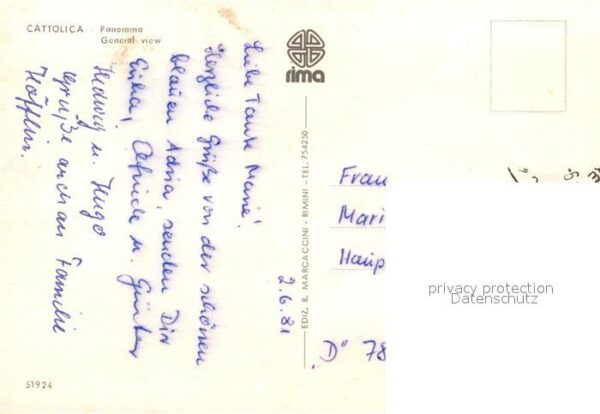 CATTOLICA - Panorama
General view
Liebe Tante Marie!
Herzliche Grüße von der schönen
blauen Adria, senden Dir
Erika, Elfriede u. Günther
Hedwig u. Hugo
Grüße auch an Familie
2.6.81
rima
EDIZ. B. MARCACCINI - RIMINI - TEL. 754250
Frau
Mari
Haup
"D" 78
privacy protection
Datenschutz
51924